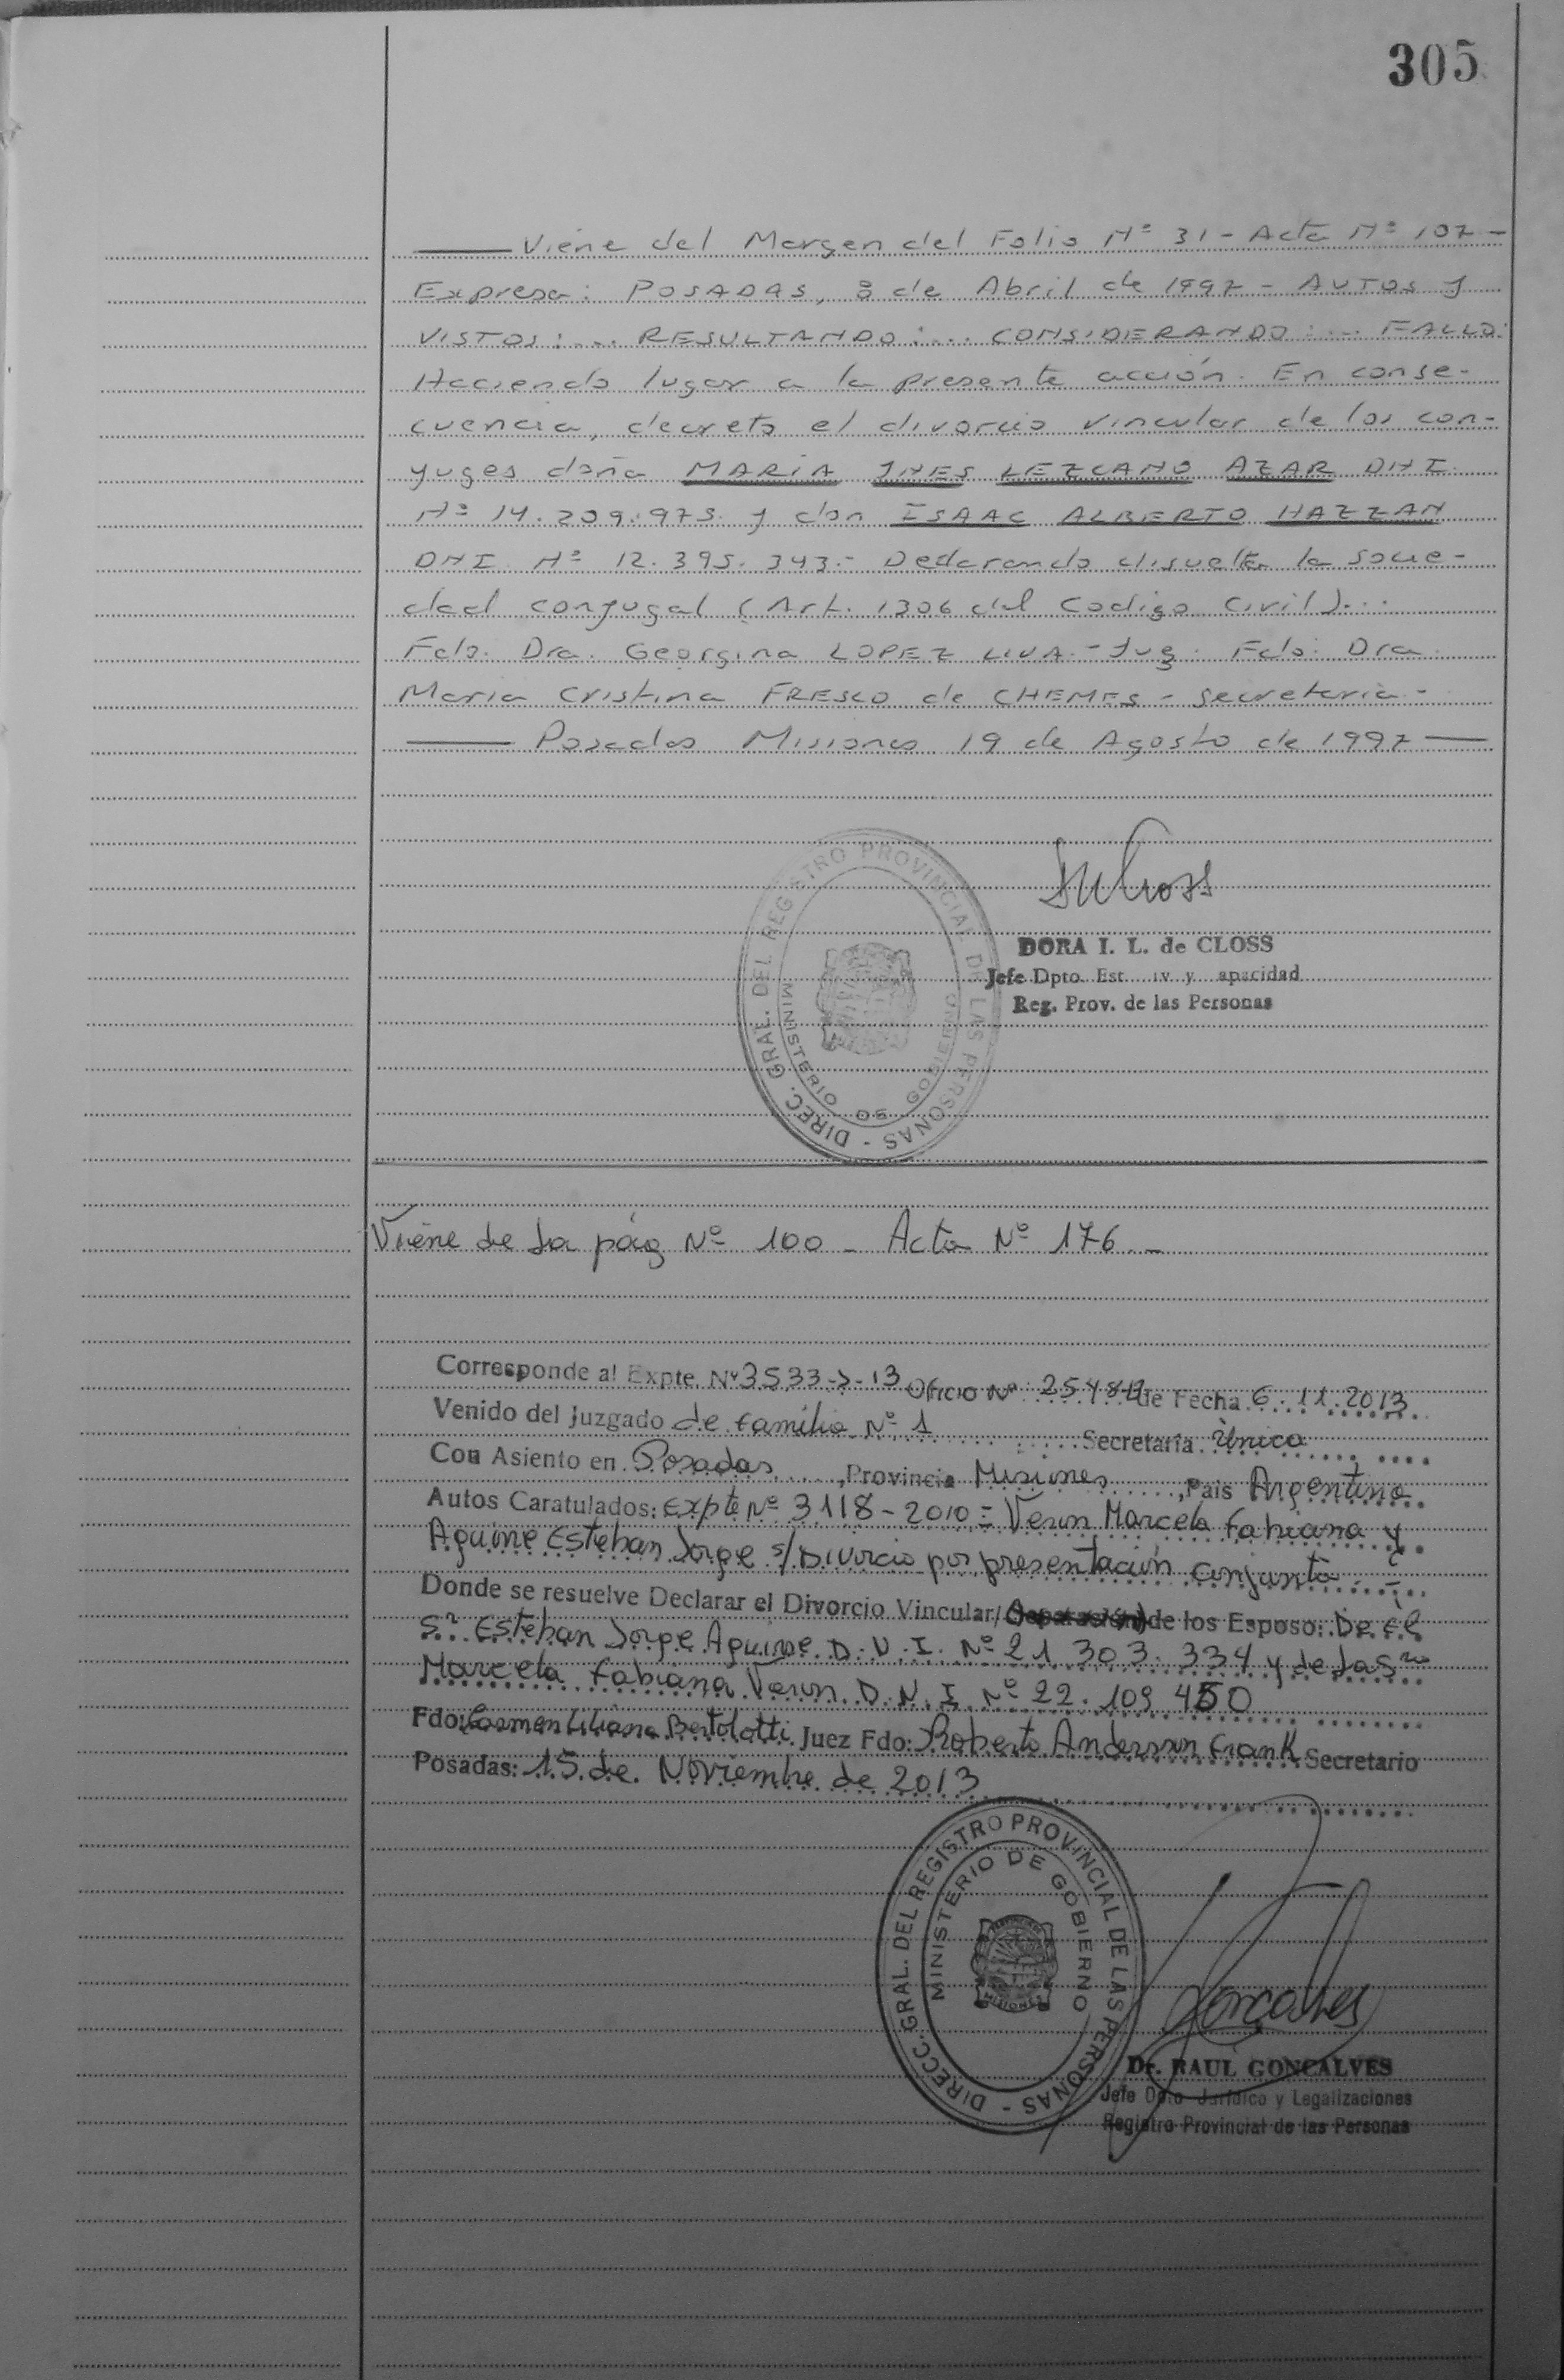 305
Viene del Margen del Folio Nº 31 - Acta Nº 107 -
Expresa: POSADAS, 8 de Abril de 1997 - AUTOS y
VISTOS: ... RESULTANDO: ... CONSIDERANDO: ... FALLO:
Haciendo lugar a la presente acción. En conse-
cuencia, decreto el divorcio vincular de los con-
yuges doña MARIA INES LEZCANO AZAR DNI
Nº 14.209.975. y don ISAAC ALBERTO HAZZAN
DNI Nº 12.395.343.- Declarando disuelta la socie-
dad conyugal (Art. 1306 del Codigo Civil)...
Fdo. Dra. Georgina LOPEZ LIVA.- Juez. Fdo: Dra.
Maria Cristina FRESCO de CHEMES - Secretaria -
Posadas Misiones 19 de Agosto de 1997
DIREC. GRAL. DEL REGISTRO PROVINCIAL DE LAS PERSONAS -
MINISTERIO DE GOBIERNO
DORA I. L. de CLOSS
Jefe Dpto. Est iv y apacidad
Reg. Prov. de las Personas
Viene de la pág Nº 100 - Acta Nº 176.-
Corresponde al Expte. Nº 3533-J-13 Oficio Nº 2548-13 de Fecha 6.11.2013
Venido del Juzgado de familia Nº 1 Secretaría Única
Con Asiento en Posadas, Provincia Misiones, Pais Argentina
Autos Caratulados: Expte Nº 3118-2010 = Veron Marcela Fabiana y
Aguirre Esteban Jorge s/Divorcio por presentación conjunta.-
Donde se resuelve Declarar el Divorcio Vincular/(Separación) de los Esposo: De el
Sr. Esteban Jorge Aguirre D.N.I. Nº 21.303.334 y de la Sra
Marcela Fabiana Veron D.N.I. Nº 22.109.450
Fdo: Carmen Liliana Bertolotti Juez Fdo: Roberto Andersson Frank Secretario
Posadas: 15 de Noviembre de 2013
DIRECC. GRAL. DEL REGISTRO PROVINCIAL DE LAS PERSONAS -
MINISTERIO DE GOBIERNO
MISIONES
Goncalves
Dr. RAUL GONCALVES
Jefe Dpto Jurídico y Legalizaciones
Registro Provincial de las Personas